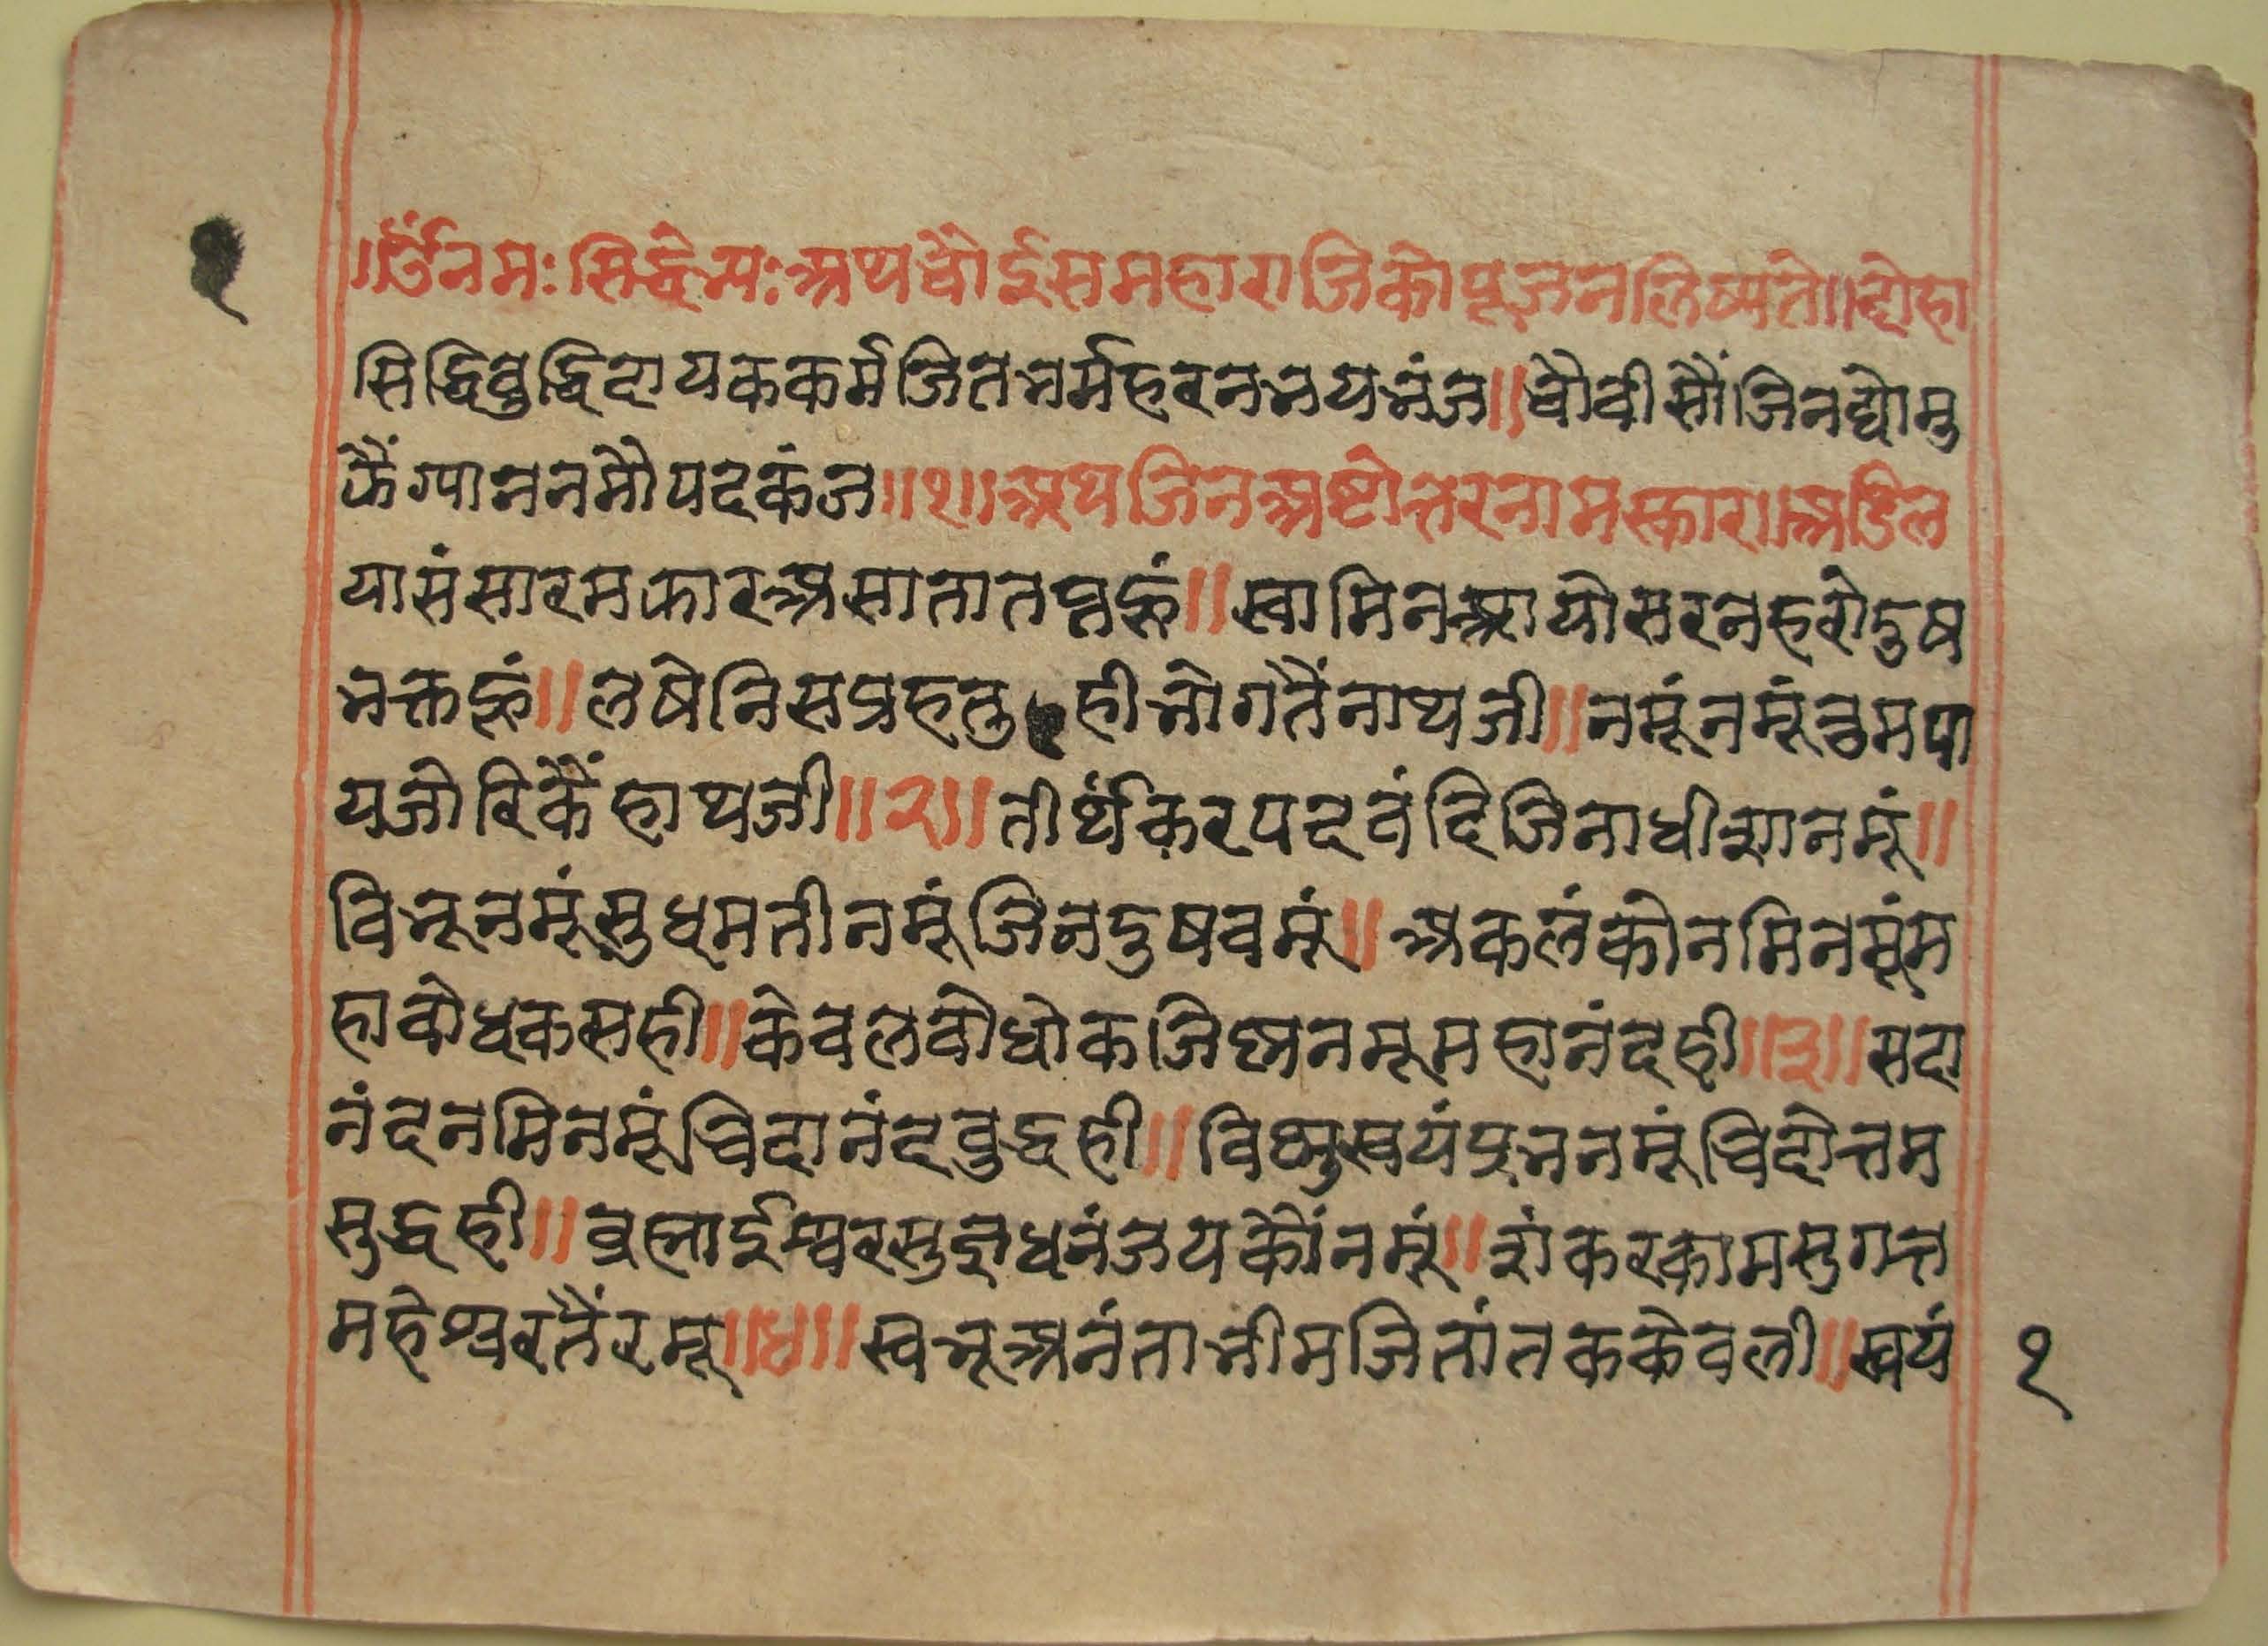 १
॥ ॐ नमः सिद्धेभ्यः अथ चौईस महाराजि को पूजन लिष्यते ॥ दोहा
सिद्धि वुद्धि दायक कर्म जित भर्म हरन भय भंज ॥ चौवीसौं जिन द्यो मु
झैं ग्यान नमौ पद कंज ॥१॥ अथ जिन अष्टोत्तर नामस्कार ॥ अडिल
या संसार मझार असाता तप्त हूं ॥ स्वामिन आयो सरन हरो दुष
भक्त हूं ॥ लषे निसप्रह तु ही भोगतैं नाथ जी ॥ नमूं नमूं तुम पा
य जोरि कैं हाथ जी ॥२॥ तीर्थंकर पद वंदि जिनाधीश नमूं ॥
विभू नमूं सुध मती नमूं जिन दुष वमूं ॥ अकलंको नमि नमूं म
हावोधक सही ॥ केवल वोधोक जिष्न नमू महानंद ही ॥३॥ सदा
नंद नमि नमूं चिदानंद वुद्ध ही ॥ विष्नु स्वयंप्रभ नमूं चिदोत्तम
सुद्ध ही ॥ व्रह्मा ईश्वर सुद्ध धनंजय कौं नमूं ॥ शंकर काम सुगत्त
महेश्वर तैं रमू ॥४॥ स्वभू अनंता भीम जितांतक केवली ॥ स्वयं
१